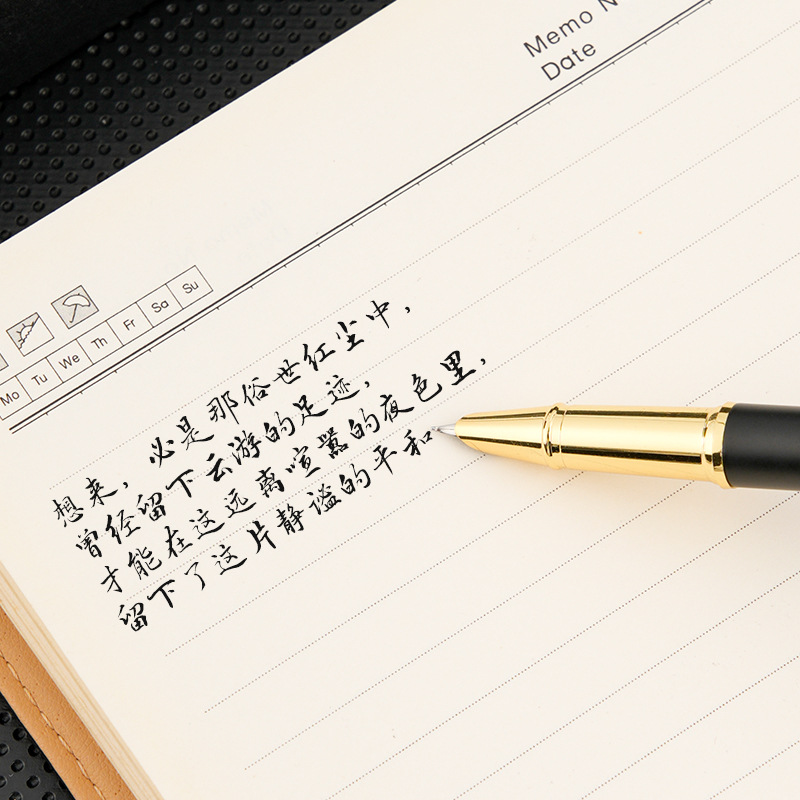 Memo N
Date
Mo Tu We Th Fr Sa Su
想来，必是那俗世红尘中，
曾经留下云游的足迹，
才能在这远离喧嚣的夜色里，
留下了这片静谧的平和